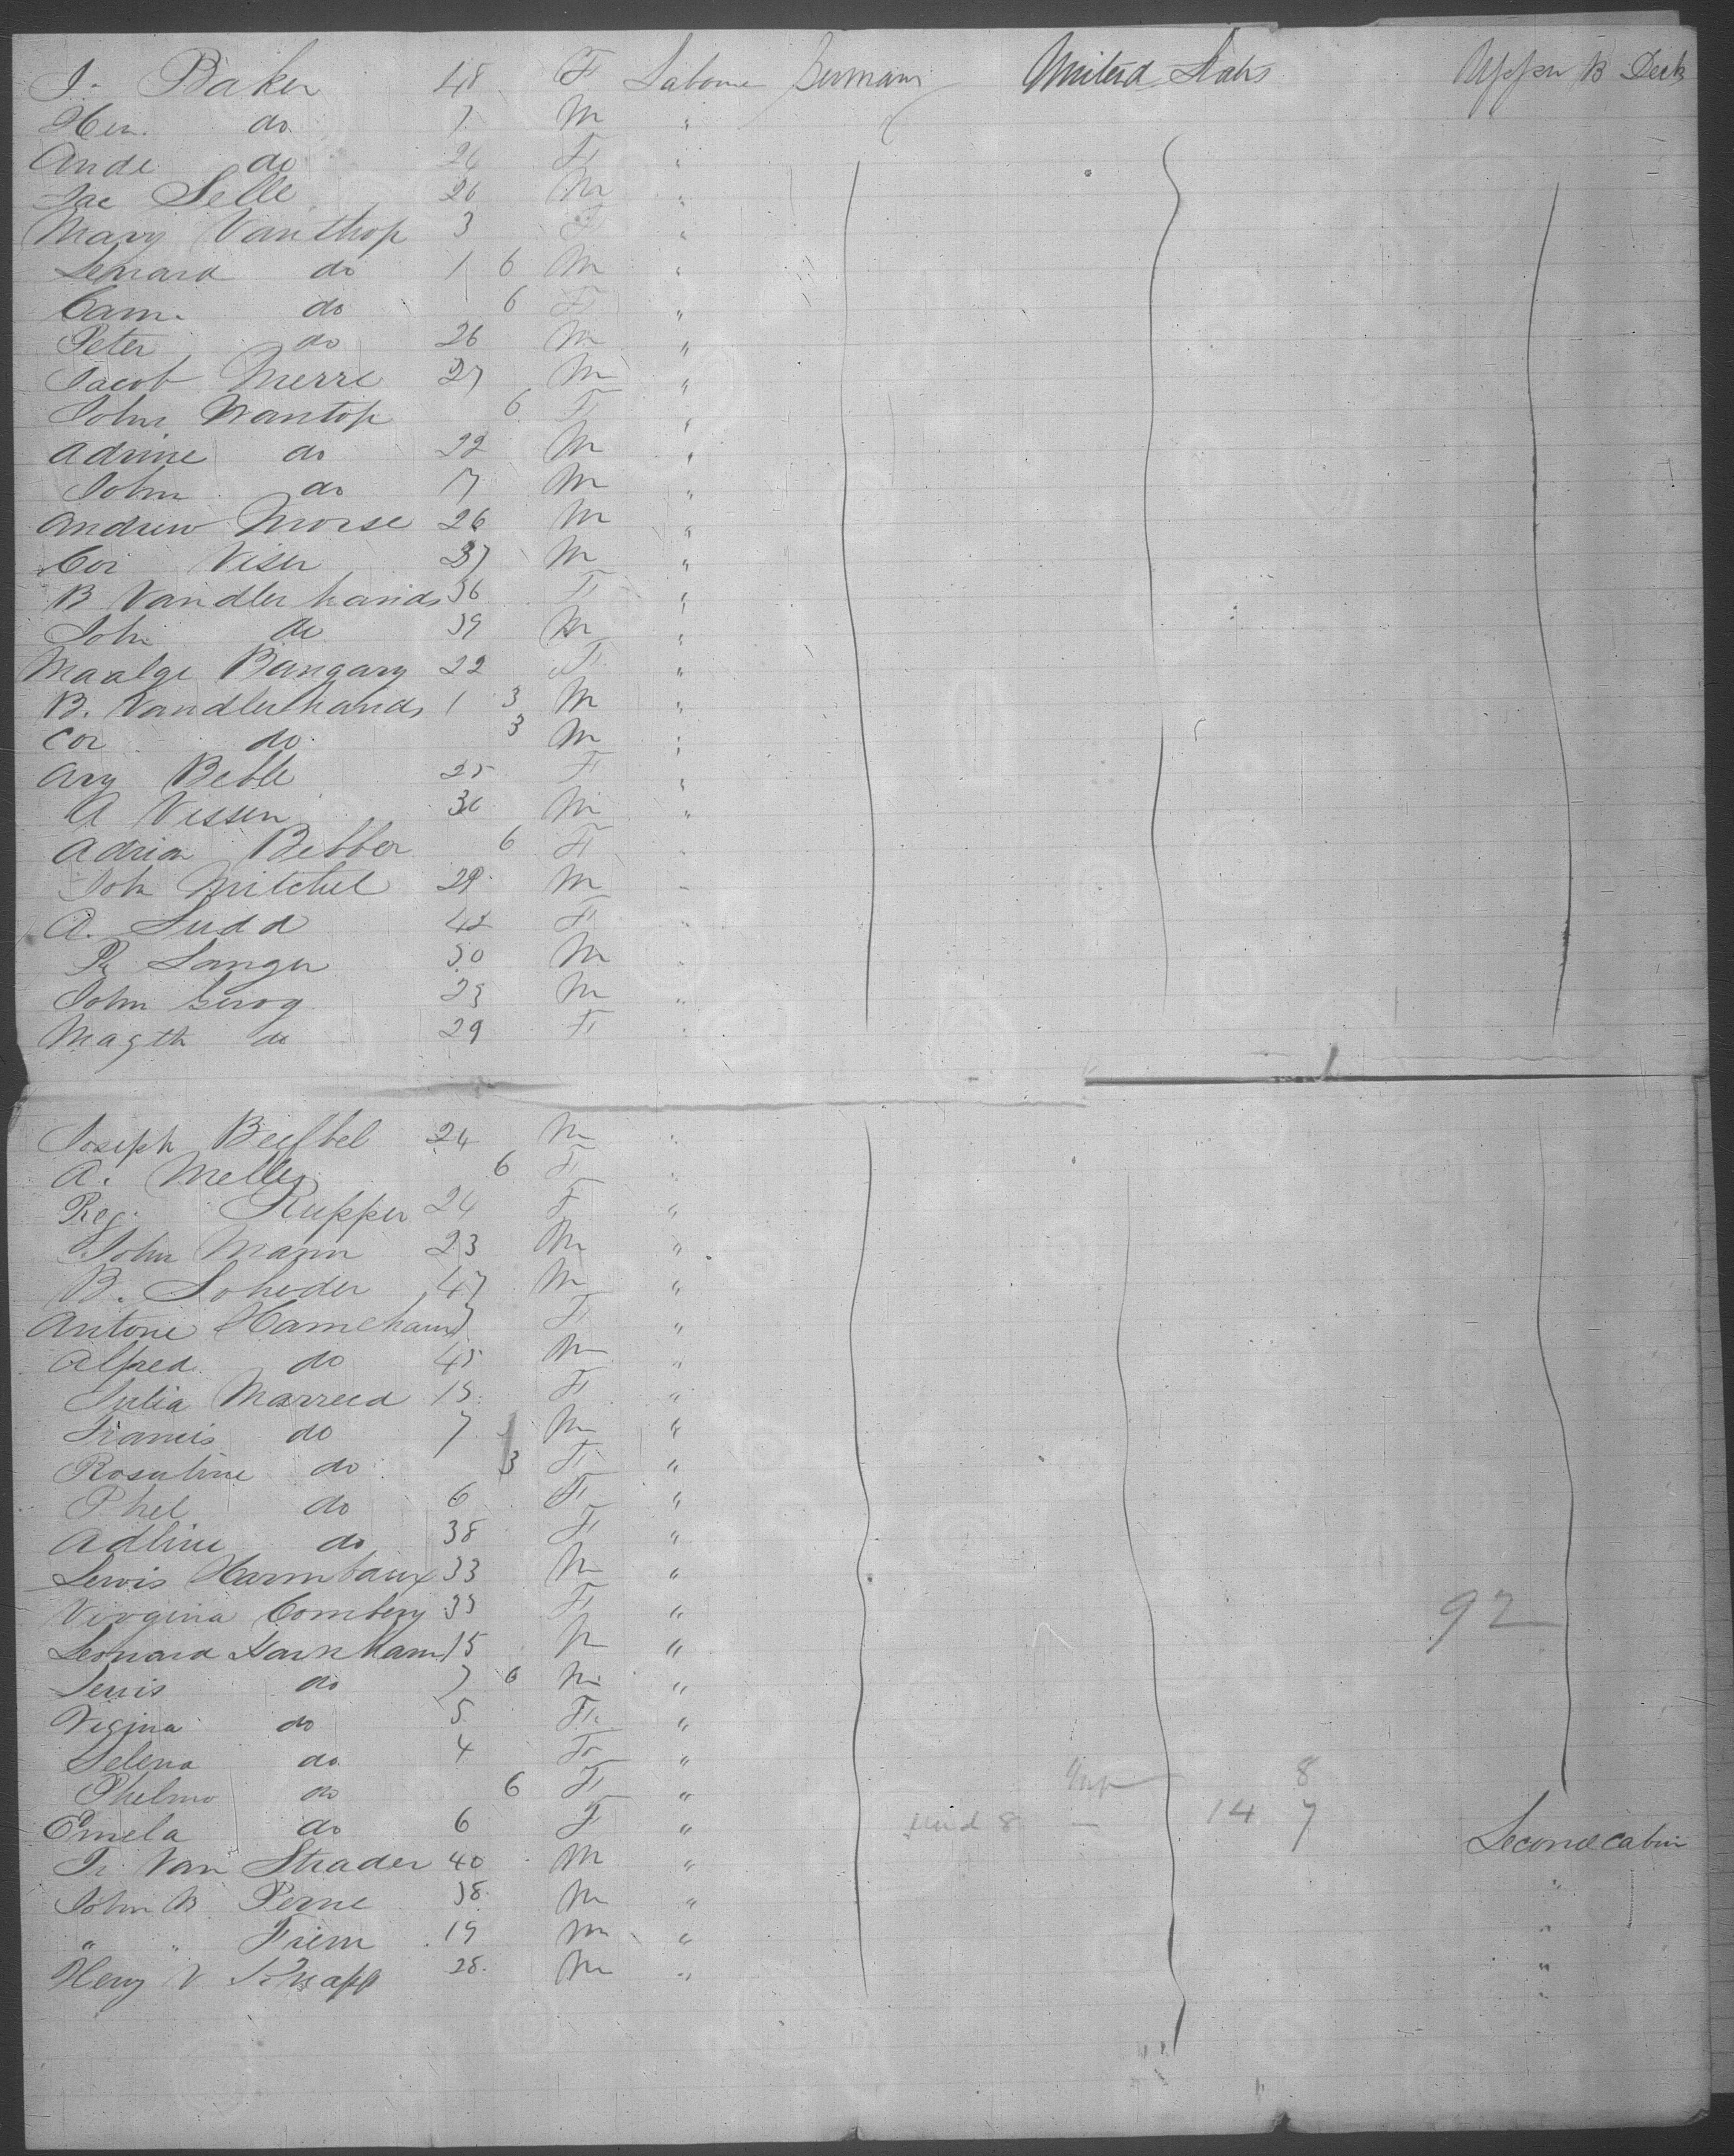 J. Baker 48 F Laborer Germany United States Upper B Deck
Hen. do 7 M "
Ande do 26 F "
Jac Selle 26 M "
Mary Vanthop 3 F "
Lenard do 1 6 M "
Cam. do 6 F "
Peter do 26 M "
Jacob Merre 27 M "
John Wantop 6 F "
Adrine do 22 M "
John do 17 M "
Andrew Morse 26 M "
Cor Viser 37 M "
B Vandlerhands 36 F "
John do 39 M "
Maalge Bangary 22 F "
B. Vandlerhands 1 3 M "
Cor do 3 M "
Ary Beble 25 F "
A Vissen 30 M "
Adrian Bebber 6 F "
Joh Mitchel 29 M "
A. Sudd 42 F "
R Langer 50 M "
John Gerog 23 M "
Magth do 29 F "
Joseph 24 M "
A. Meller 6 F "
Reg. Rupper 24 F "
John Mann 23 M "
B. Soheder 47 M "
Antone Hamcham 7 F "
Alfred do 45 M "
Julia Marreed 15 F "
Francis do 7 M "
Rosaline do 3 F "
Phel do 6 F "
Adline do 38 F "
Lewis Harmbaux 33 M "
Virginia Combery 35 F "
92
Leonard Harkham 15 M "
Lewis do 7 6 M "
Vigina do 5 F "
Selena do 4 F "
Phelmo do 6 F " 8
Emela do 6 F " 8 14 7 Second cabin
Van Strader 40 M " "
John B Perne 38 M "
" " Friem 19 M " "
Heny V Knapp 28 M " "